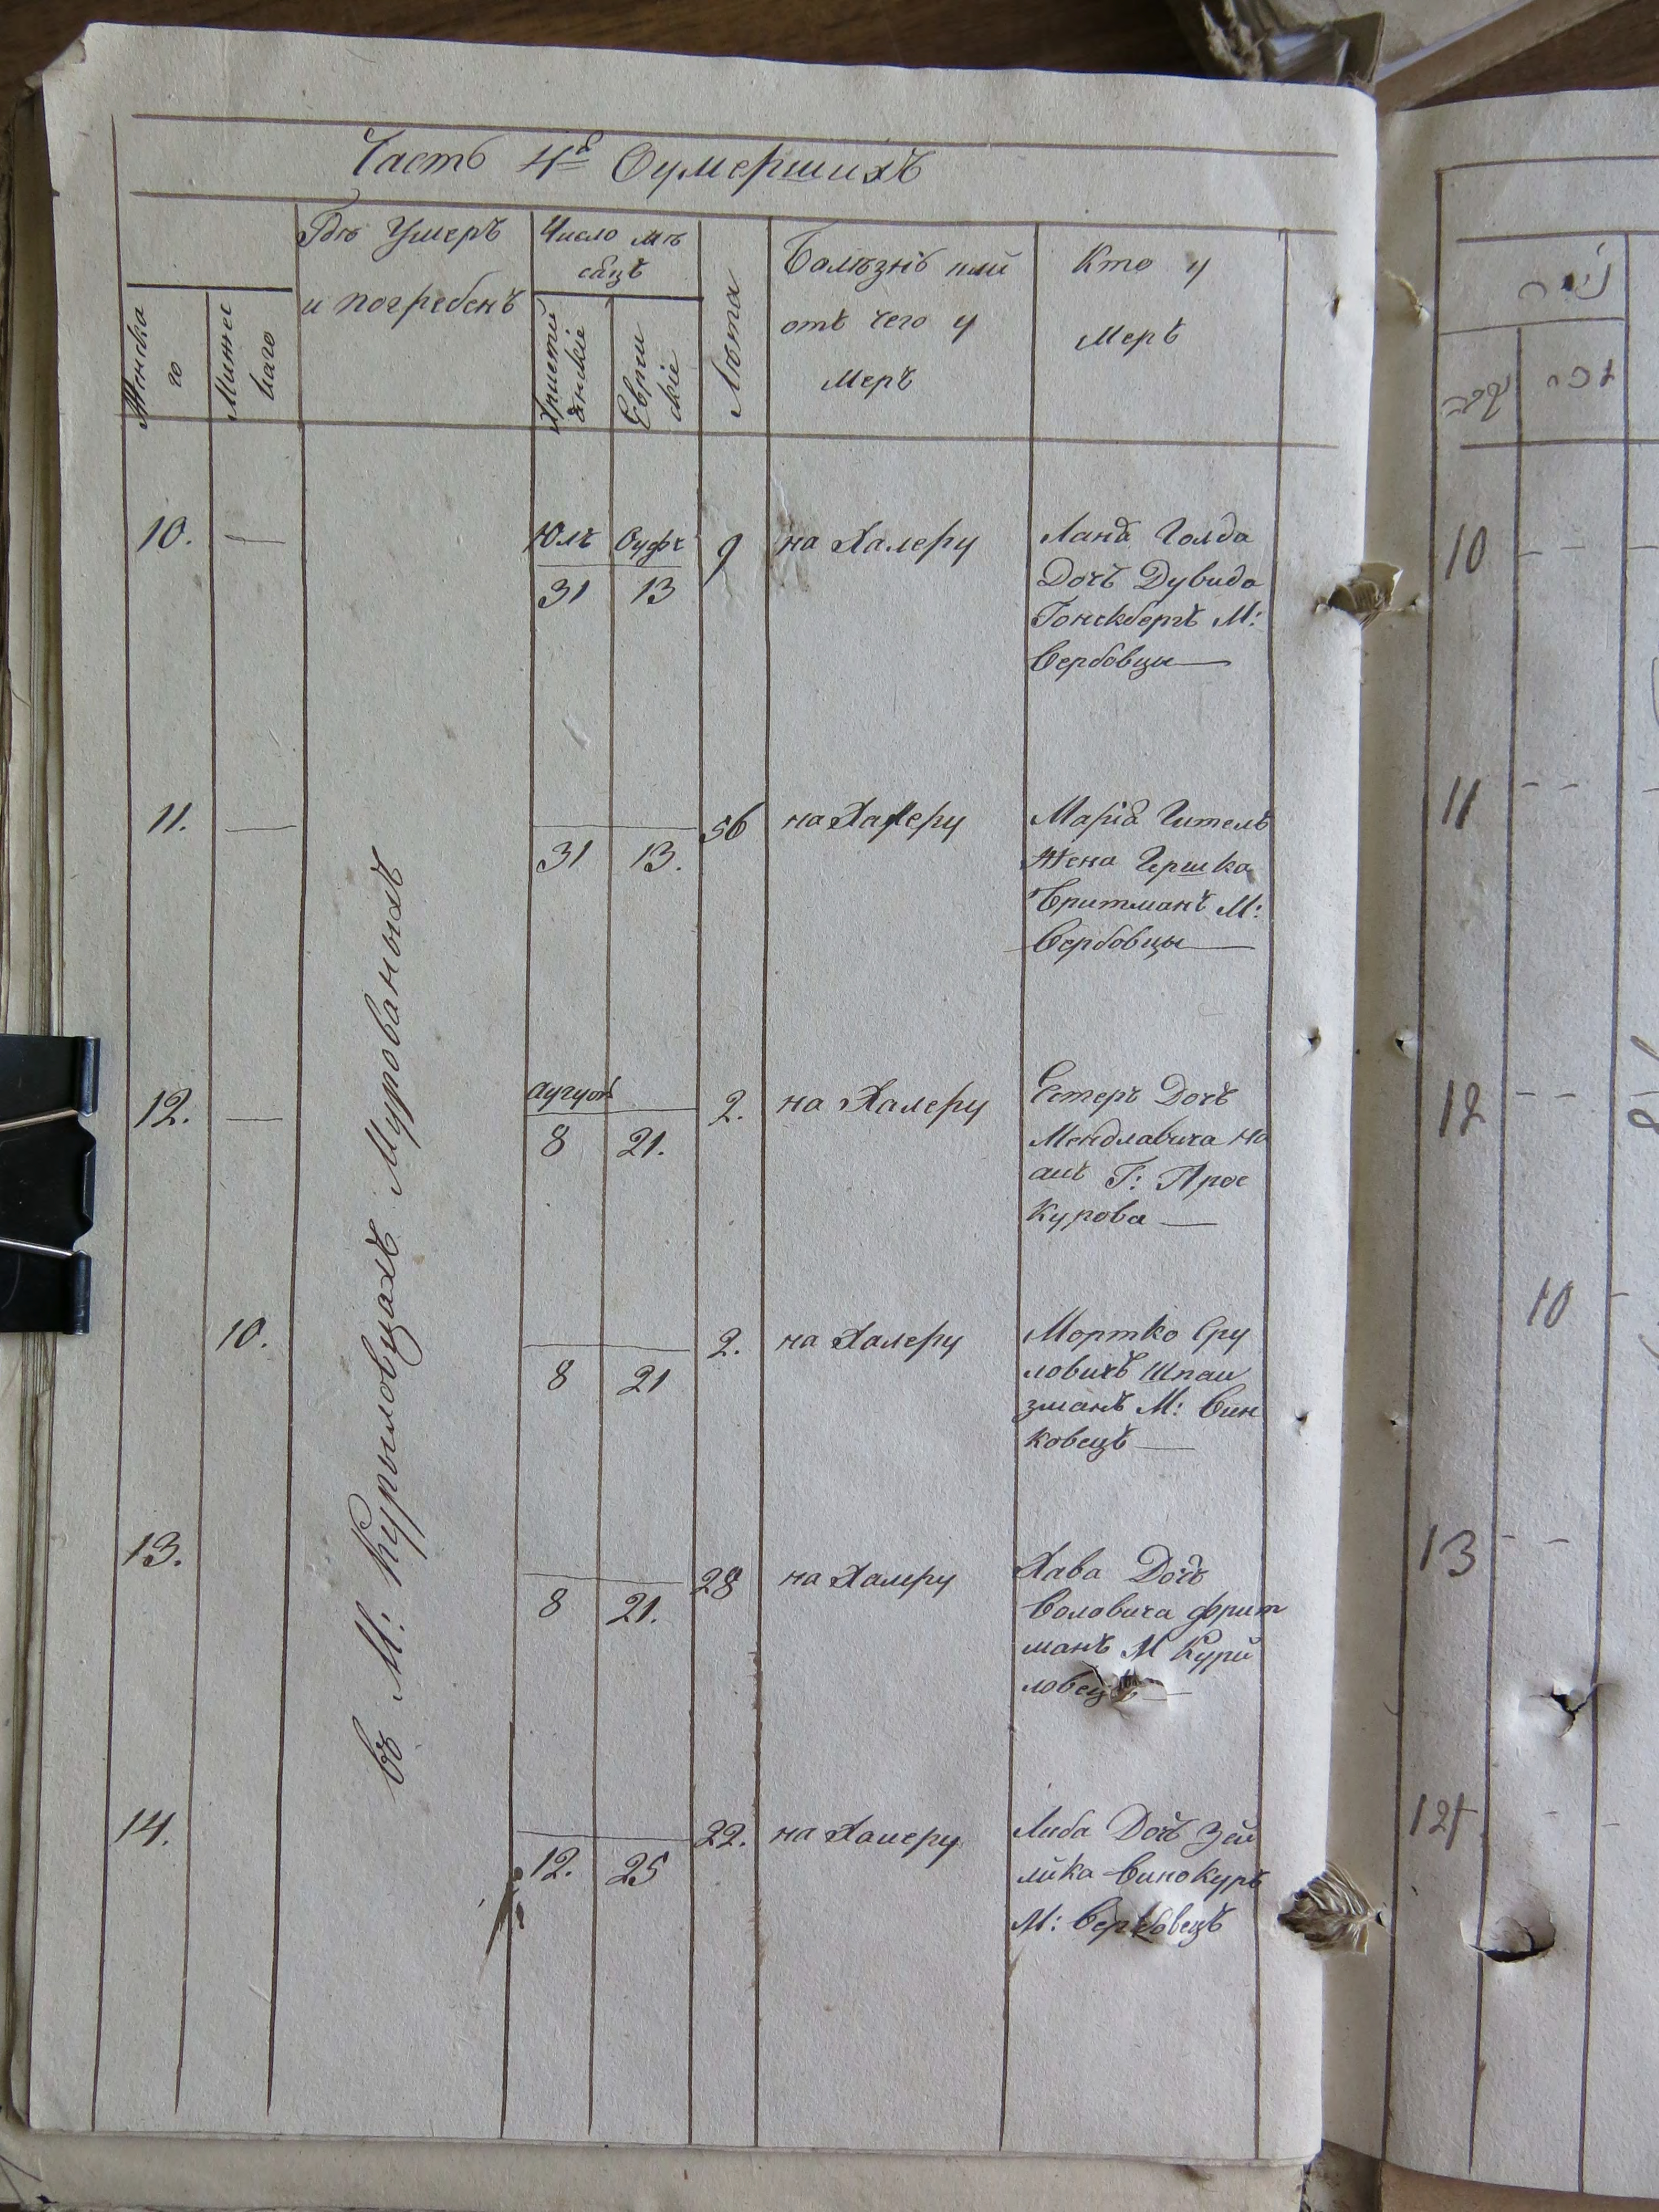 Часть 4я Оумершихъ
Женска
го
Мижес
каго
Гдѣ Умеръ
и погребенъ
Число мѣ
сяцъ
Христи
янскіе
Евреи
скіе
Лѣта
Болѣзнь или
отъ чего у
меръ
Кто у
меръ
въ М: Курыловцахъ Мурованыхъ
10. —
Юлъ
31 13
9
на Халеру
Лана Голда
Дочъ Дувида
М:
Вербовцы
11. —
31 13.
56
на Халеру
Марія Гитель
Жена Гершка
Бритманъ М:
Вербовцы
12. —
8 21.
2.
на Халеру
Естеръ Дочъ
Мендлавича
Г: Прос
курова
10.
8 21
2.
на Халеру
Мортко Сру
ловичъ Шпаи
зманъ М: Вин
ковецъ
13.
8 21.
28
на Халеру
Хава Дочъ
Воловича Фрит
манъ М Кури
ловецъ
14.
12. 25
22.
на Халеру
Либа Дочъ Зей
лика Винокуръ
М: Вербовецъ
10
11
12
10
13
14